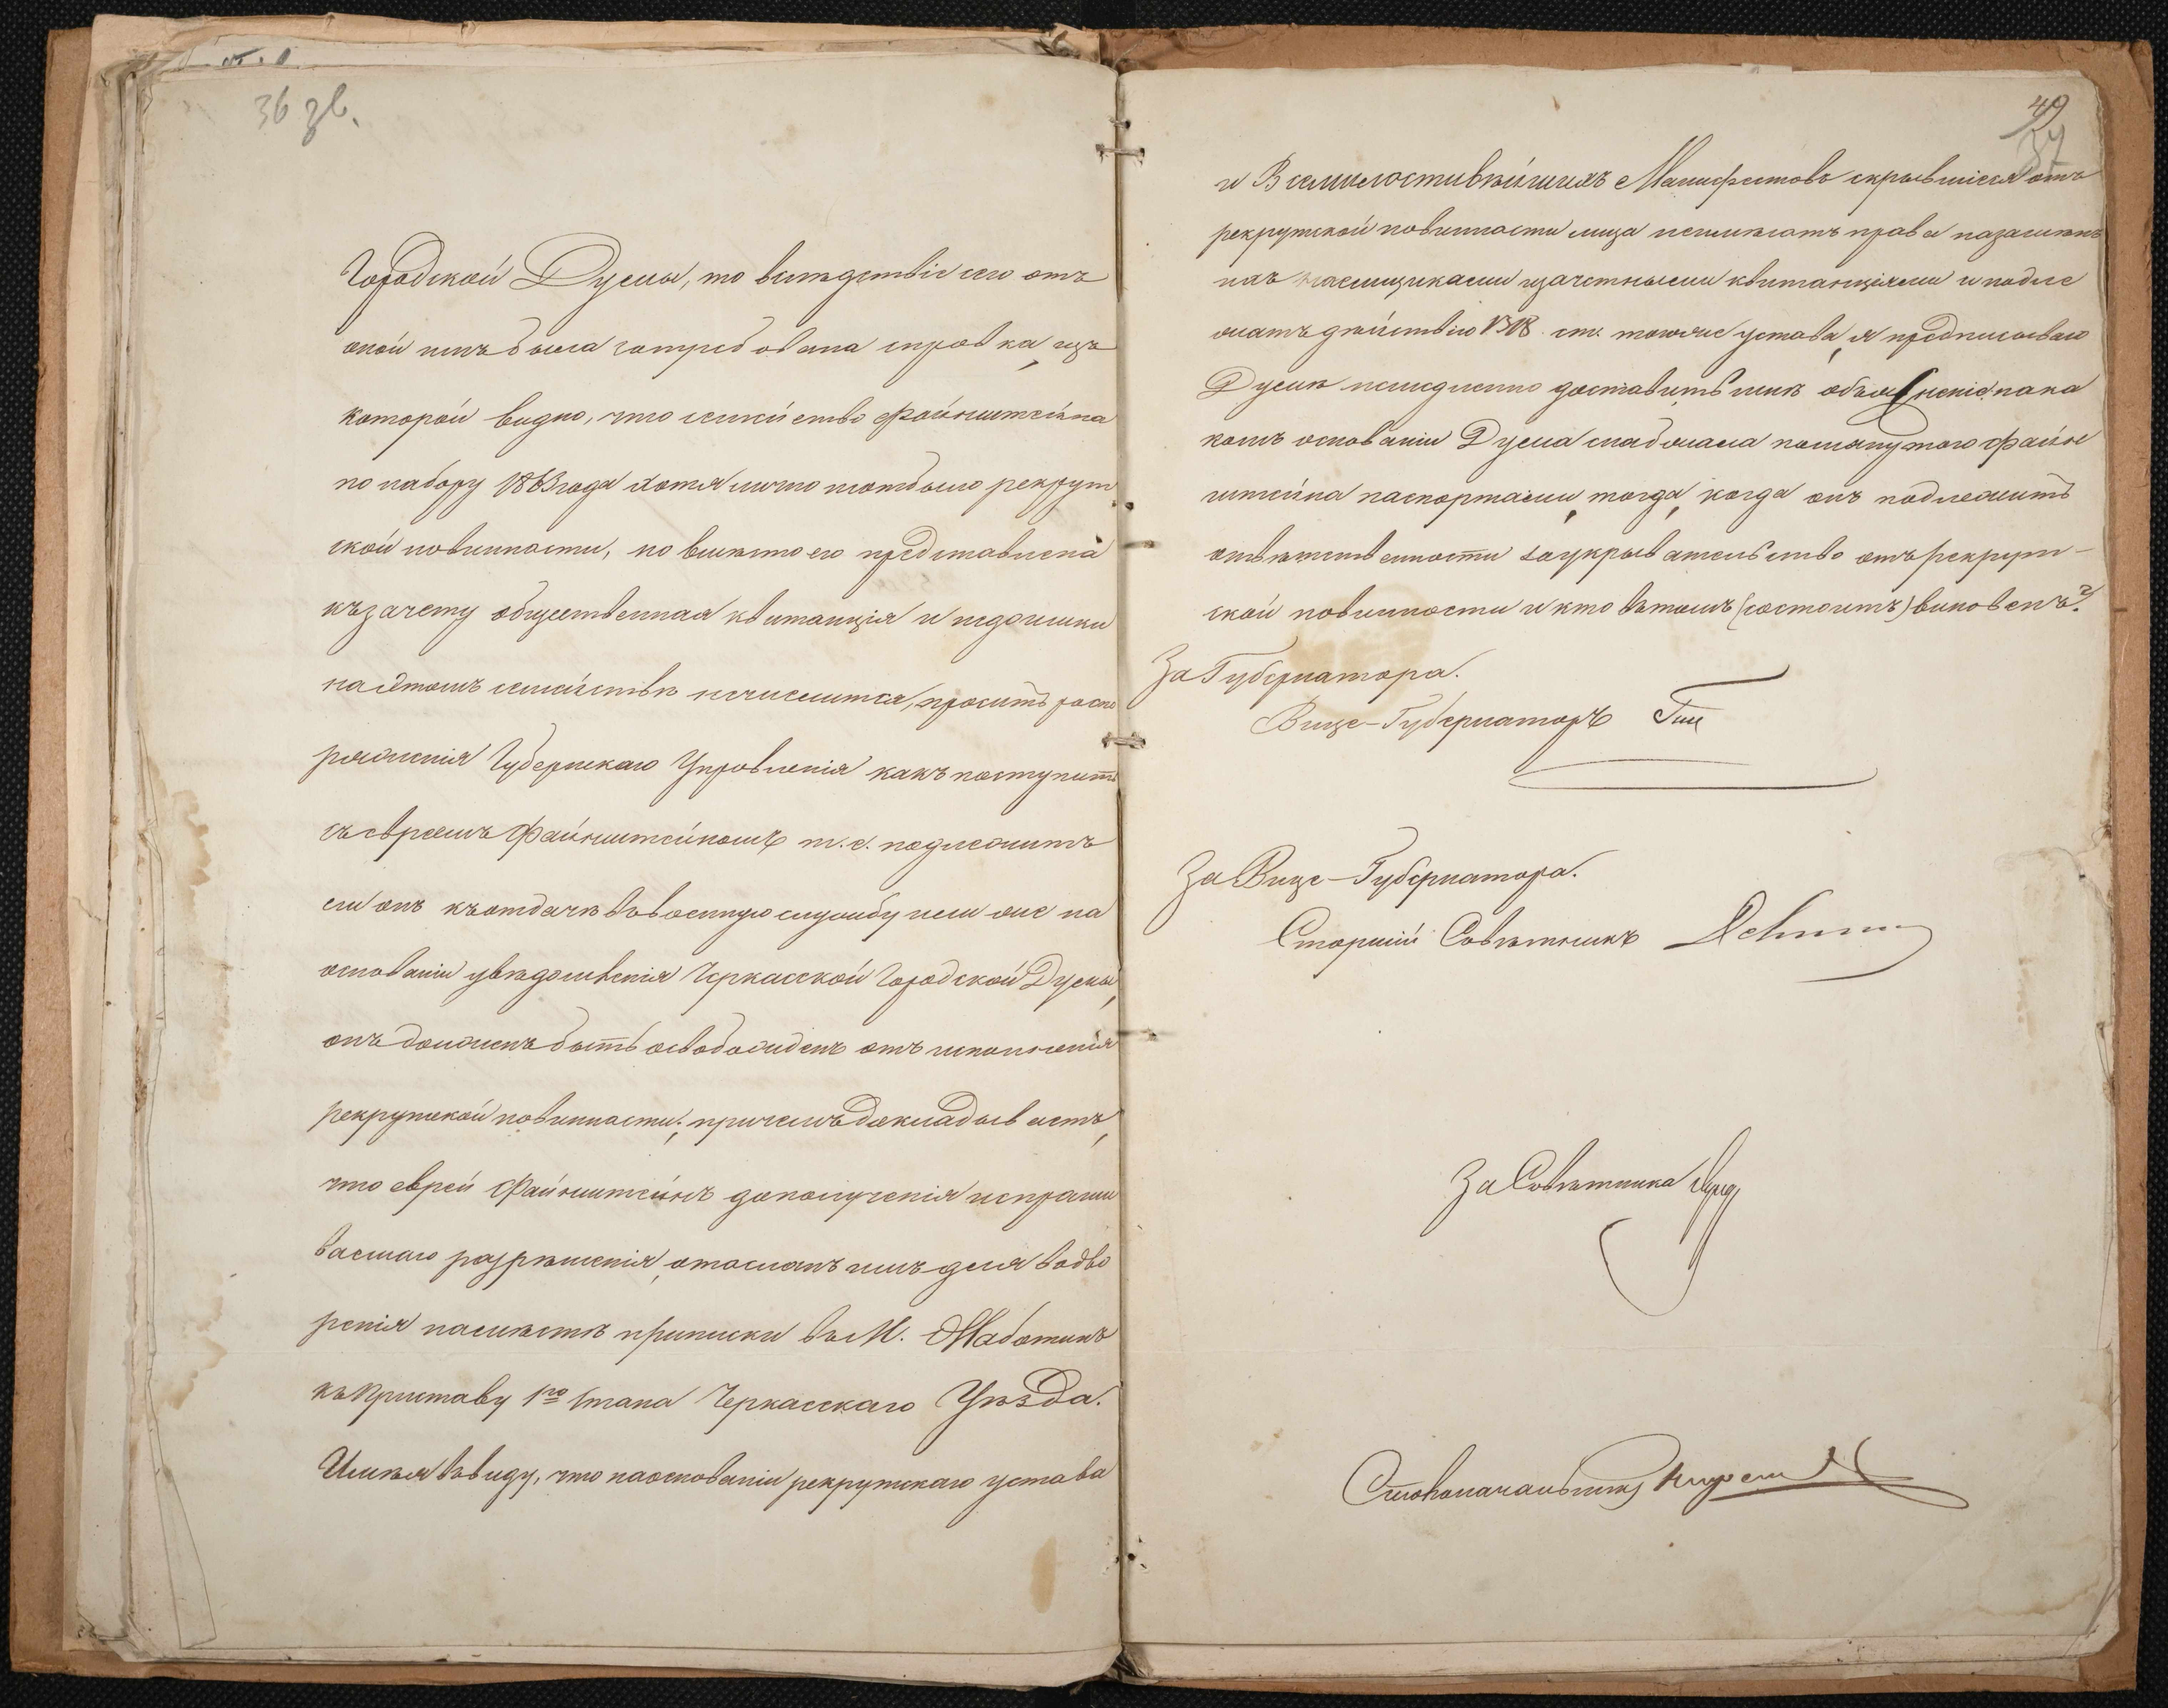 36 зв.
Городской Думы, то вслѣдствіе сего отъ
оной имъ была затребована справка, изъ
которой видно, что семейство Файнштейна
по набору 1863 года хотя лично не отбыло рекрут
ской повинности, но вмѣсто его представлена
къ зачету общественная квитанція и недоимки
на этомъ семействѣ не числится, проситъ распо
ряженія Губернскаго Управленія какъ поступить
съ евреемъ Файнштейномъ т. е. подлежитъ
ли онъ къ отдачѣ въ военную службу или же на
основаніи увѣдомленія Черкасской Городской Думы,
онъ долженъ быть освобожденъ отъ исполненія
рекрутской повинности; причемъ докладываетъ,
что еврей Файнштейнъ до полученія испраши
ваемаго разрѣшенія, отосланъ имъ для водво
ренія на мѣстѣ приписки въ М. Жаботинъ
къ Приставу 1го Стана Черкасскаго Уѣзда.
Имѣя въ виду, что на основаніи рекрутскаго устава
49
37
и Всемилостивѣйшихъ Манифестовъ скрывшіеся отъ
рекрутской повинности лица не имѣютъ права на замѣнъ
ихъ наемщиками и зачетными квитанціями и подле
жатъ дѣйствію ст. того же устава, я предписываю
Думѣ немедленно доставить мнѣ объясненіе, на ка
комъ основаніи Дума снабжала помянутого Файн
штейна паспортами, тогда, когда онъ подлежитъ
отвѣтственности за укрывательство отъ рекрут-
ской повинности и кто въ томъ (состоитъ) виновенъ?
За Губернатора.
Вице-Губернаторъ
За Вице-Губернатора.
Старшій Совѣтникъ
За Совѣтника
Столоначальникъ